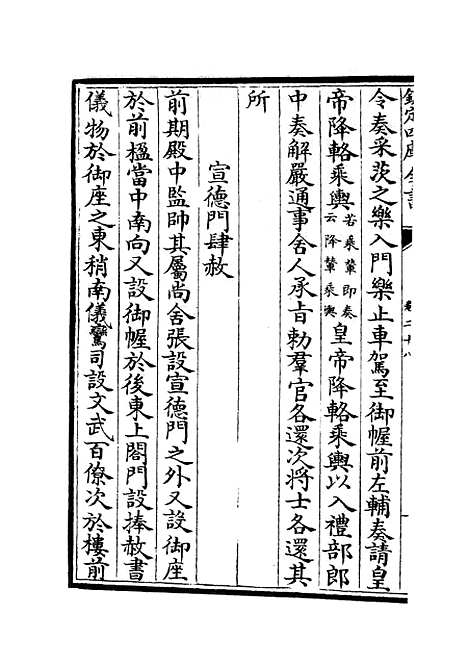 欽定四庫全書
卷二十八
令奏采茨之樂入門樂止車駕至御幄前左輔奏請皇
帝降輅乘輿若乘輦即奏云降輦乘輿皇帝降輅乘輿以入禮部郎
中奏解嚴通事舍人承旨勅羣官各還次將士各還其
所
宣德門肆赦
前期殿中監帥其屬尚舍張設宣德門之外又設御座
於前楹當中南向又設御幄於後東上閤門設捧赦書
儀物於御座之東稍南儀鸞司設文武百僚次於樓前